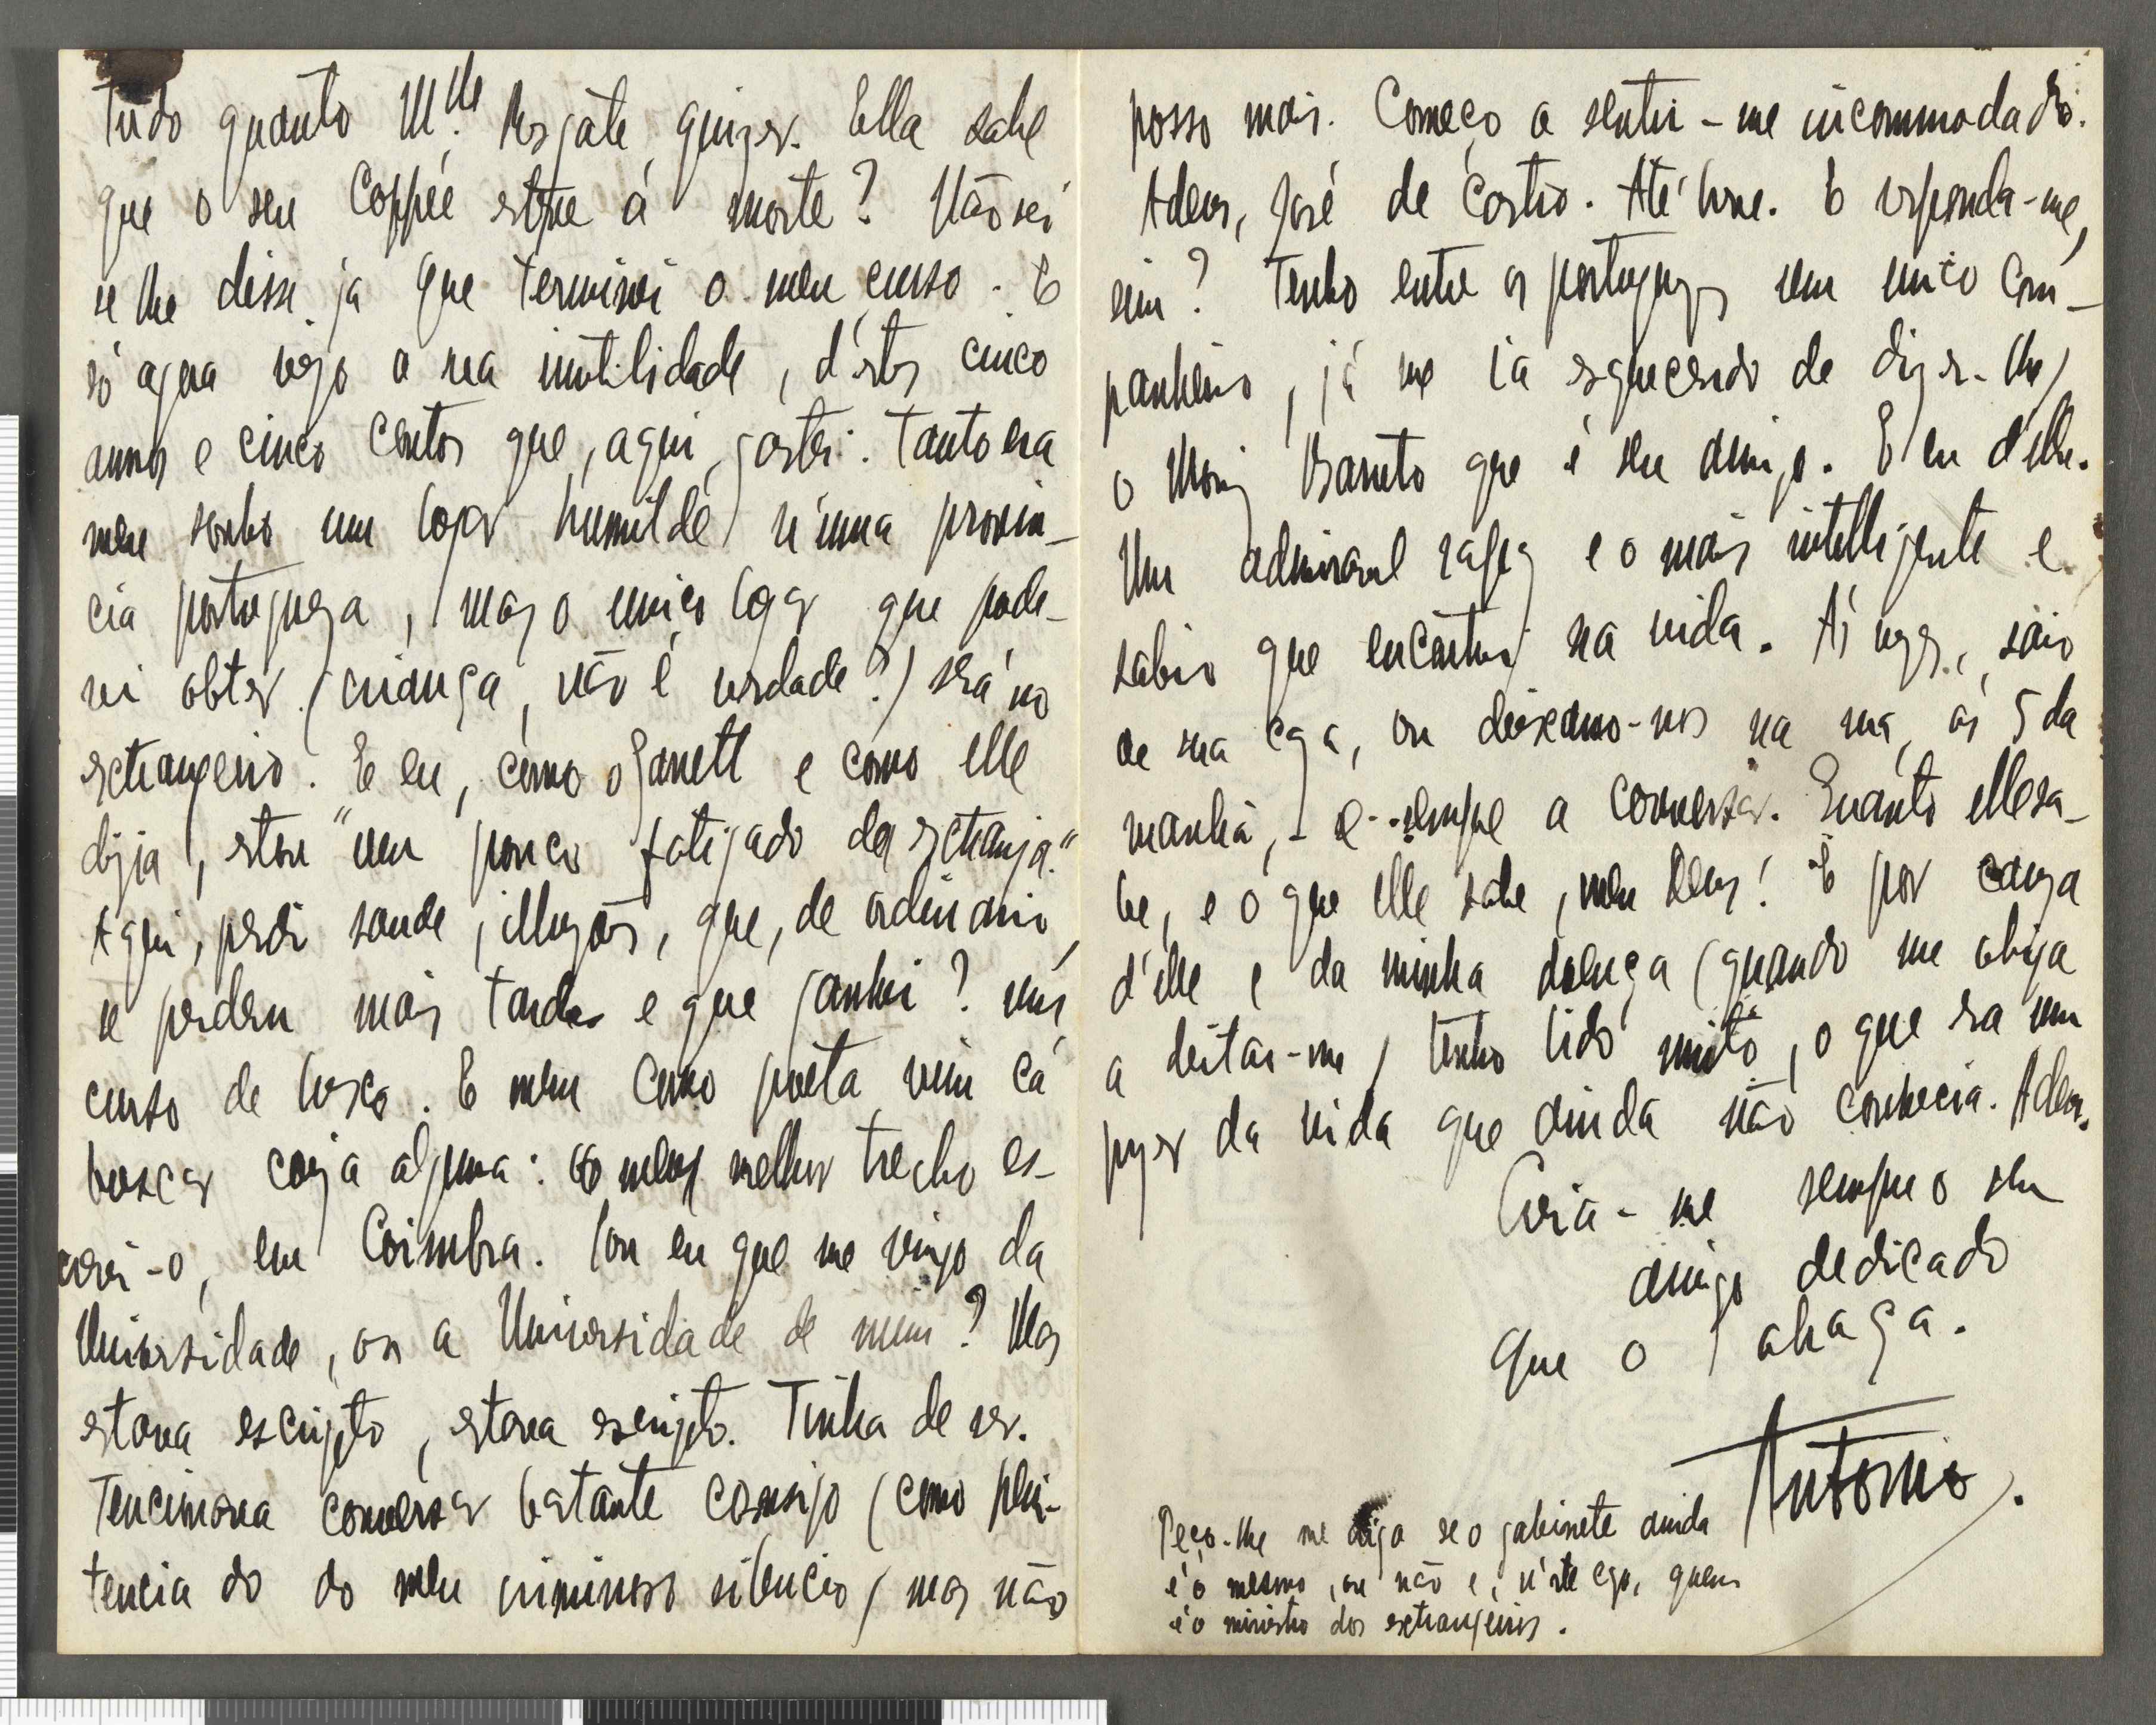 Tudo quanto M.lle quizer. Ella sabe
que o seu Coppée esteve á morte? Não sei
se lhe disse já que terminei o meu curso. E
só agora vejo a sua inutilidade, d'estes cinco
annos e cinco contos que, aqui, gastei. Tanto era
meu sonho um logar humilde n'uma provin-
cia portugueza, mas o unico logar que pode-
rei obter (criança, não é verdade?) será no
extrangeiro. E eu, como o Garrett e como elle
dizia, estou "um pouco fatigado da extranja."
Aqui, perdi saude, illuzões, que, de ordinario,
se perdem mais tarde e que ganhei? um
curso de lusco. E nem como poeta vim cá
buscar coiza alguma: o meu melhor trecho es-
crevi-o, em Coimbra. Sou eu que me vingo da
Universidade, ou a Universidade de mim? Mas
estava escripto, estava escripto. Tinha de ser.
Tencionava conversar bastante comsigo (como peni-
tencia do do meu criminoso silencio) mas não
posso mais. Começo a sentir-me incommodado.
Adeus, José de Castro. Até breve. E responda-me,
sim? Tenho entre os portuguezes um unico com-
panheiro, (já me ia esquecendo de dizer-lhe)
o Moniz Barreto que é seu amigo. E eu d'elle.
Um admiravel rapaz e o mais intelligente e
sabio que encontrei na vida. Ás vezes, saio
de sua caza, ou deixamo-nos na rua, ás 5 da
manhã, - e sempre a conversar. Quanto elle sa-
be, e o que elle sabe, meu Deus! E por cauza
d'elle e da minha doença (quando me obriga
a deitar-me) tenho lido muito, o que era um
prazer da vida que ainda não conhecia. Adeus.
Creia-me sempre o seu
amigo dedicado
que o abraça.
Antonio.
Peço-lhe me diga se o gabinete ainda
é o mesmo, ou não e, n'este cazo, quem
é o ministro dos extrangeiros.